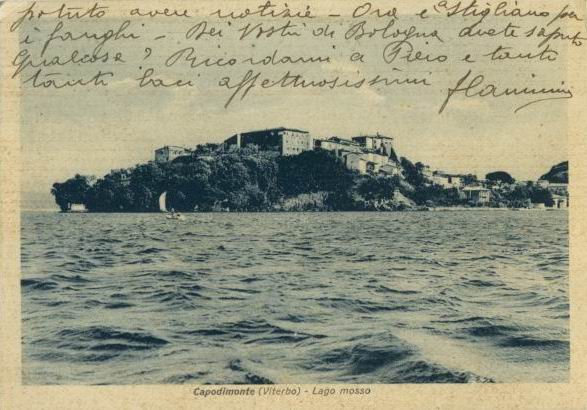 potuto avere notizie - Ora è a Stigliano per
i fanghi - Dei Vostri di Bologna avete saputo
qualcosa? Ricordami a Piero e tanti
tanti baci affettuosissimi
Capodimonte (Viterbo) - Lago mosso